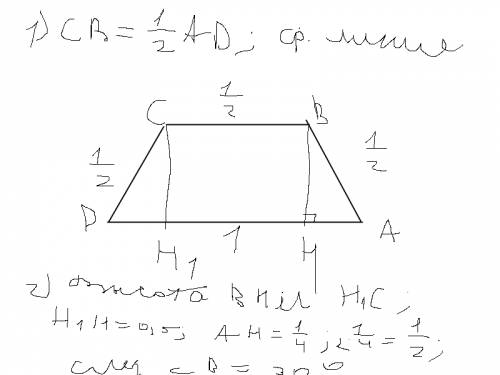 1) CB = 1/2 AD; ср. линия
1/2
C B
1/2 1/2
D 1 A
H1 H
2) высота BH и H1C;
H1H = 0,5; AH = 1/4; 2 1/4 = 1/2;
B = 30°